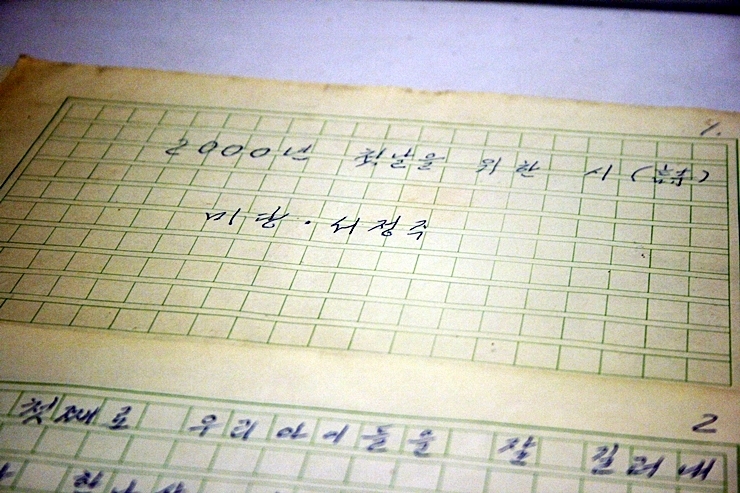 1.
2000년 첫날을 위한 시 (詩)
미당 · 서정주
2
첫째로 우리 아이들을 잘 길러내